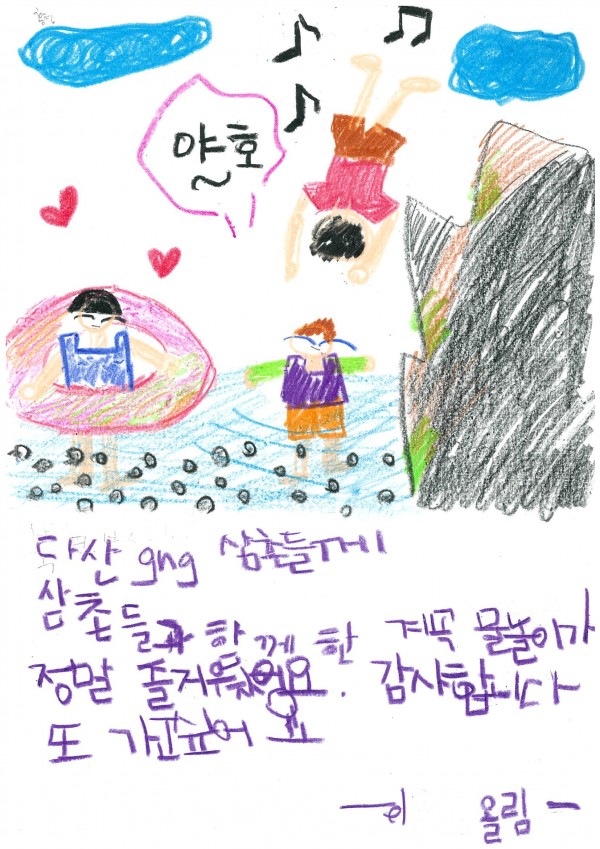 얏호~
다산 gng 삼촌들께
삼촌들과 함께 한 계곡 물놀이가
정말 즐거웠어요. 감사합니다
또 가고싶어요
올림